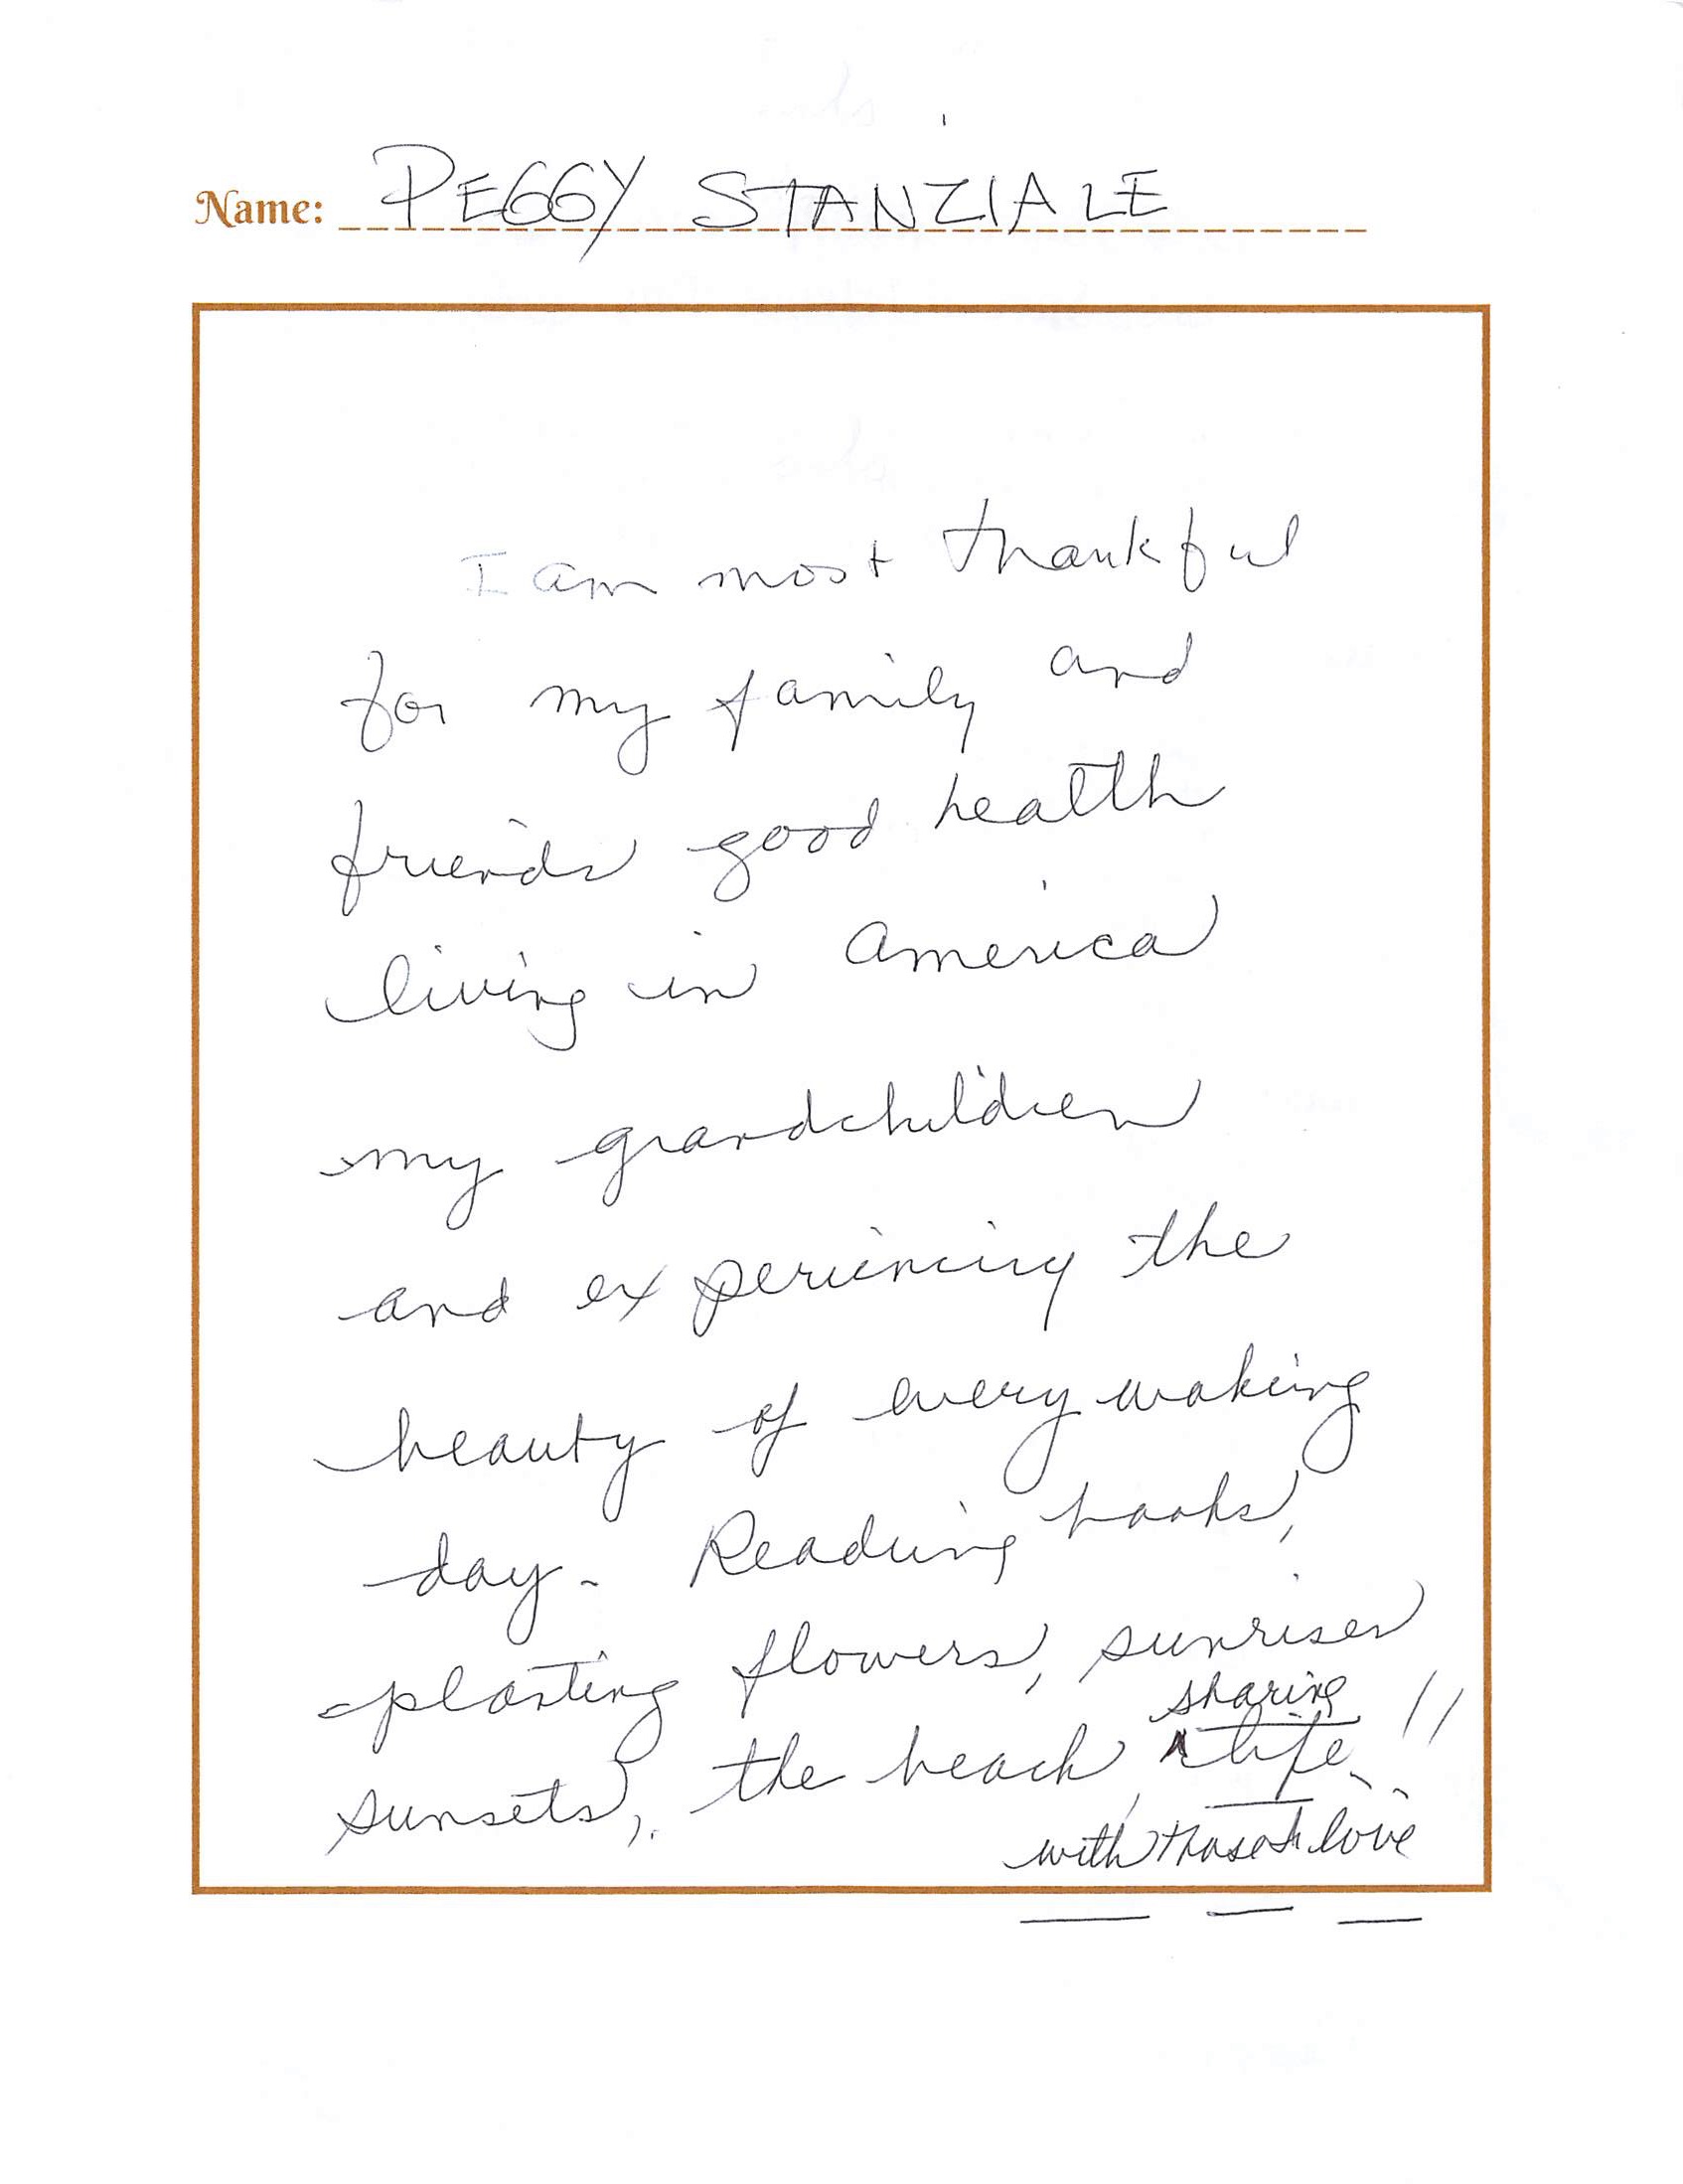 Name: PEGGY STANZIALE
I am most thankful
for my family and
friends good health
living in America
my grandchildren
and experiencing the
beauty of every waking
day. Reading books,
planting flowers, sunrises
sunsets, the beach, sharing life!!
with those I love